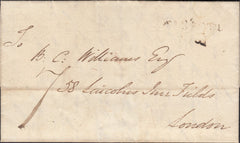 To
B. C. Williams Esq
7
58 Lincolns Inn Fields
London